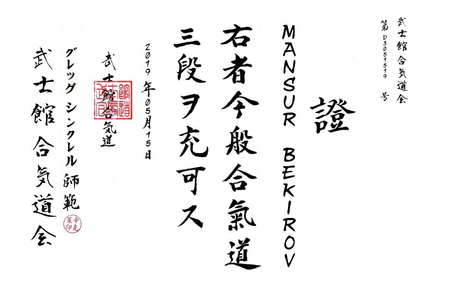 武士館合気道会
第 D3051519 号
證
MANSUR BEKIROV
右者今般合氣道
三段ヲ充可ス
2019年05月15日
武士館合気道
グレッグ シンクレル 師範
武士館合気道会